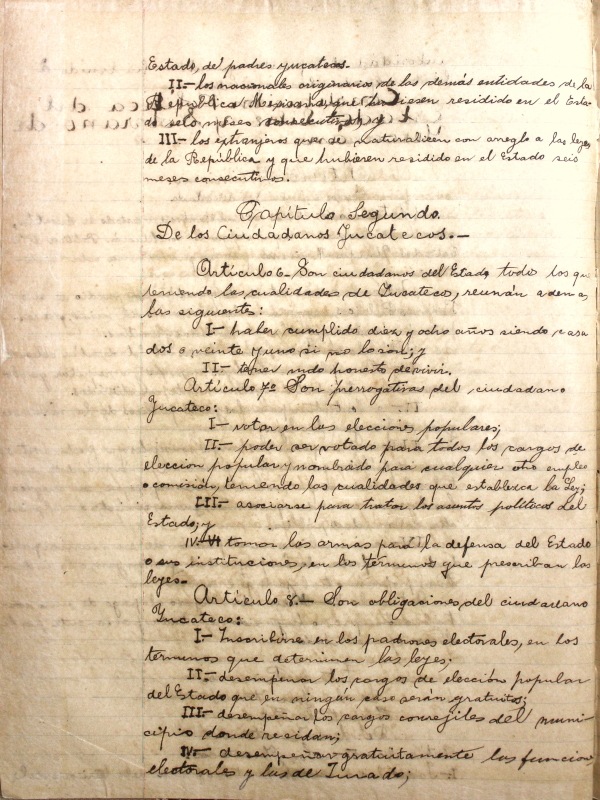 Estado, de padres yucatecos.
II.- los nacionales originarios de las demás entidades de la
República Mexicana, que hubiesen residido en el Esta-
do seis meses consecutivos, y
III.- los extranjeros que se naturalicen con arreglo a las leyes
de la República y que hubieren residido en el Estado seis
meses consecutivos.
Capítulo Segundo.
De los Ciudadanos Yucatecos.-
Artículo 6.- Son ciudadanos del Estado todo los que
teniendo las cualidades de Yucateco, reunan adema
las siguiente:
I- haber cumplido diez y ocho años siendo casa
dos o veinte y uno si no lo son; y
II- tener modo honesto de vivir.
Artículo 7º Son prerrogativas del ciudadano
Yucateco:
I- votar en las elecciones populares;
II.- poder ser votado para todos los cargos de
elección popular y nombrado para cualquier otro empleo
o comisión, teniendo las cualidades que establezca la Ley;
III.- asociarse para tratar los asuntos políticos del
Estado; y
IV.- tomar las armas para la defensa del Estado
o sus instituciones, en los términos que prescriban las
leyes.-
Artículo 8.- Son obligaciones, del ciudadano
Yucateco:
I- Inscribirse en los padrones electorales, en los
términos que determinen las leyes;
II.- desempeñar los cargos de elección popular
del Estado que en ningún caso serán gratuitos;
III.- desempeñar los cargos concejiles del muni
cipio donde residan;
IV.- desempeñar gratuitamente las funcione
electorales y las de Jurado;